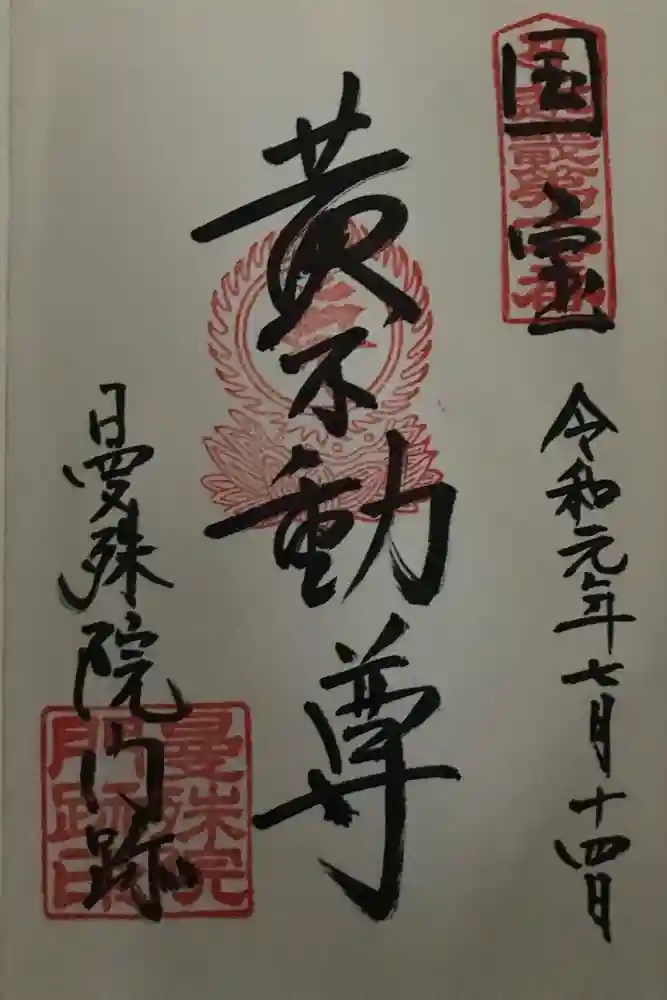 国宝
令和元年七月十四日
黄不動尊
曼殊院門跡
曼殊院
門跡印